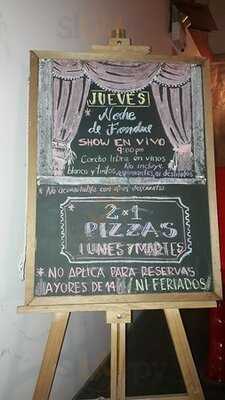 JUEVES
Noche
de Fondue
SHOW EN VIVO
9:00 pm
Corcho libre en vinos
blanco y tintos No incluye
espumantes ni destilados
* No acumulable con otros descuentos
2x1
PIZZAS
LUNES Y MARTES
* NO APLICA PARA RESERVAS
MAYORES DE 14 NI FERIADOS